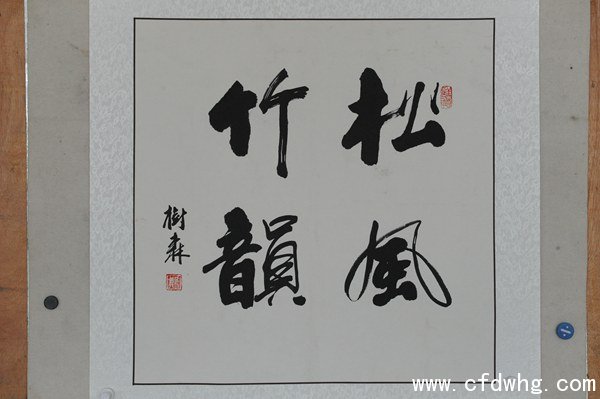 松風
竹韻
樹森
www.cfdwhg.com